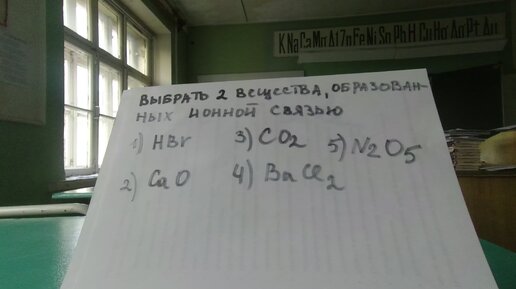 K Na Ca Mn Al Zn Fe Ni Sn Pb H Cu Hg Ag Pt Au
ВЫБРАТЬ 2 ВЕЩЕСТВА, ОБРАЗОВАН-
НЫХ ИОННОЙ СВЯЗЬЮ
1) HBr 3) CO2 5) N2O5
2) CaO 4) BaCl2